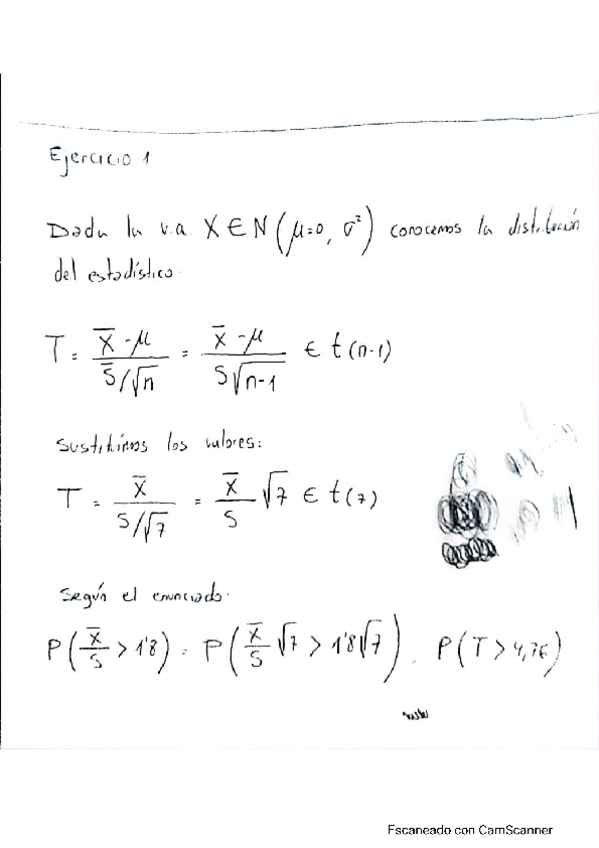 Ejercicio 1
Dada la v.a. X ∈ N(μ=0, σ²) conocemos la distribución
del estadístico.
T = (X̄ - μ)/(S̄/√n) = (X̄ - μ)/(S√n-1) ∈ t(n-1)
Sustituimos los valores:
T = X̄/(S/√7) = X̄/S √7 ∈ t(7)
Según el enunciado.
P(X̄/S > 1'8) = P(X̄/S √7 > 1'8√7) = P(T > 4,76)
Escaneado con CamScanner